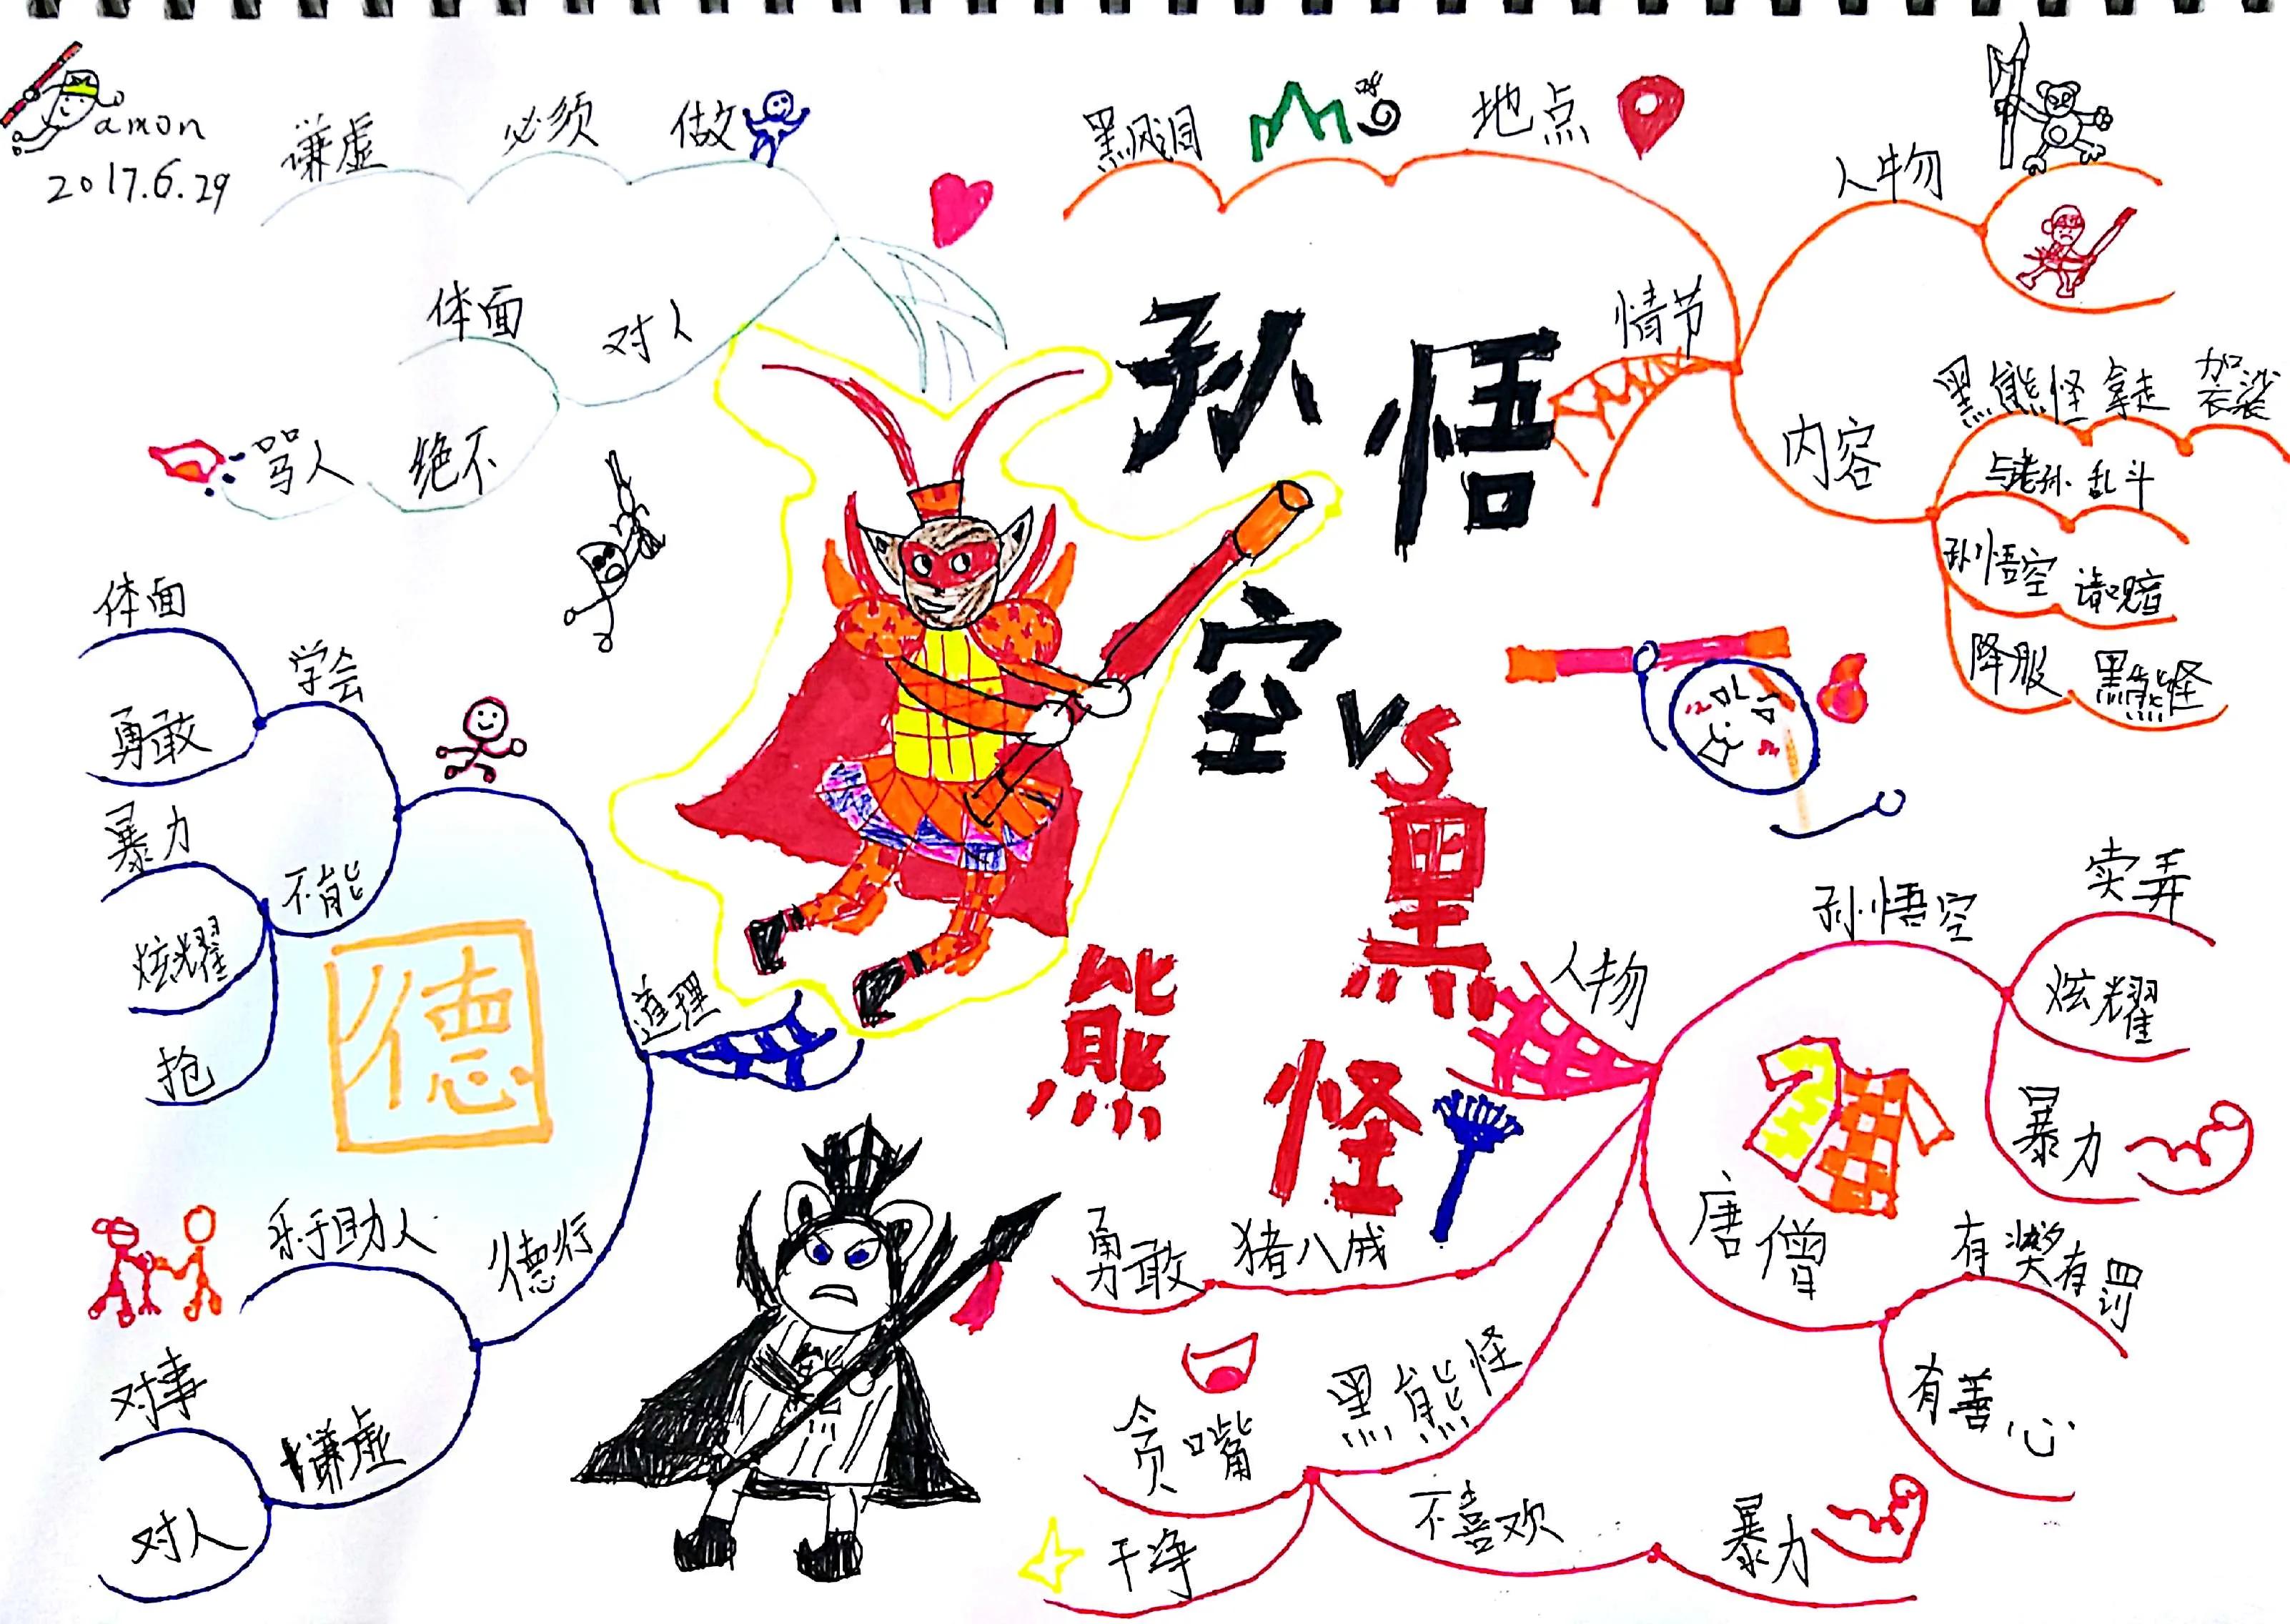 amon
2017.6.29
谦虚 必须 做
体面 对人
骂人 绝不
孙悟空 vs 黑熊怪
黑风洞 地点
情节
人物
内容
黑熊怪 拿走 袈裟
与老孙 乱斗
孙悟空 请观音
降服 黑熊怪
人物
孙悟空
卖弄
炫耀
暴力
唐僧
有奖有罚
有善心
勇敢 猪八戒
黑熊怪
贪嘴
干净
不喜欢 暴力
道理
学会
体面
勇敢
不能
暴力
炫耀
抢
德
德行
乐于助人
谦虚
对事
对人